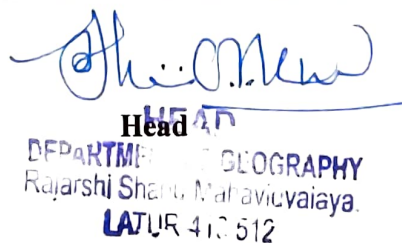 HEAD
Head
DEPARTME GEOGRAPHY
Rajarshi Shahu Mahavidyalaya.
LATUR 413 512